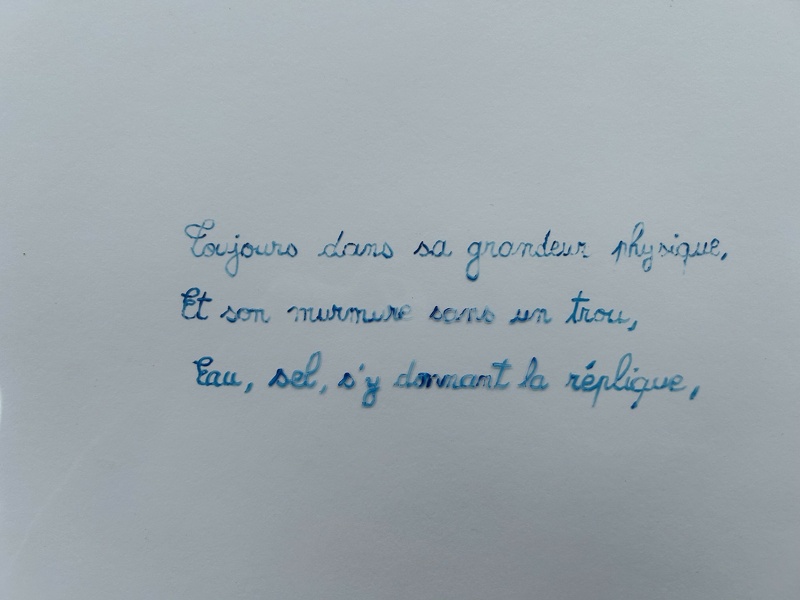 Toujours dans sa grandeur physique,
Et son murmure sans un trou,
Eau, sel, s'y donnant la réplique,